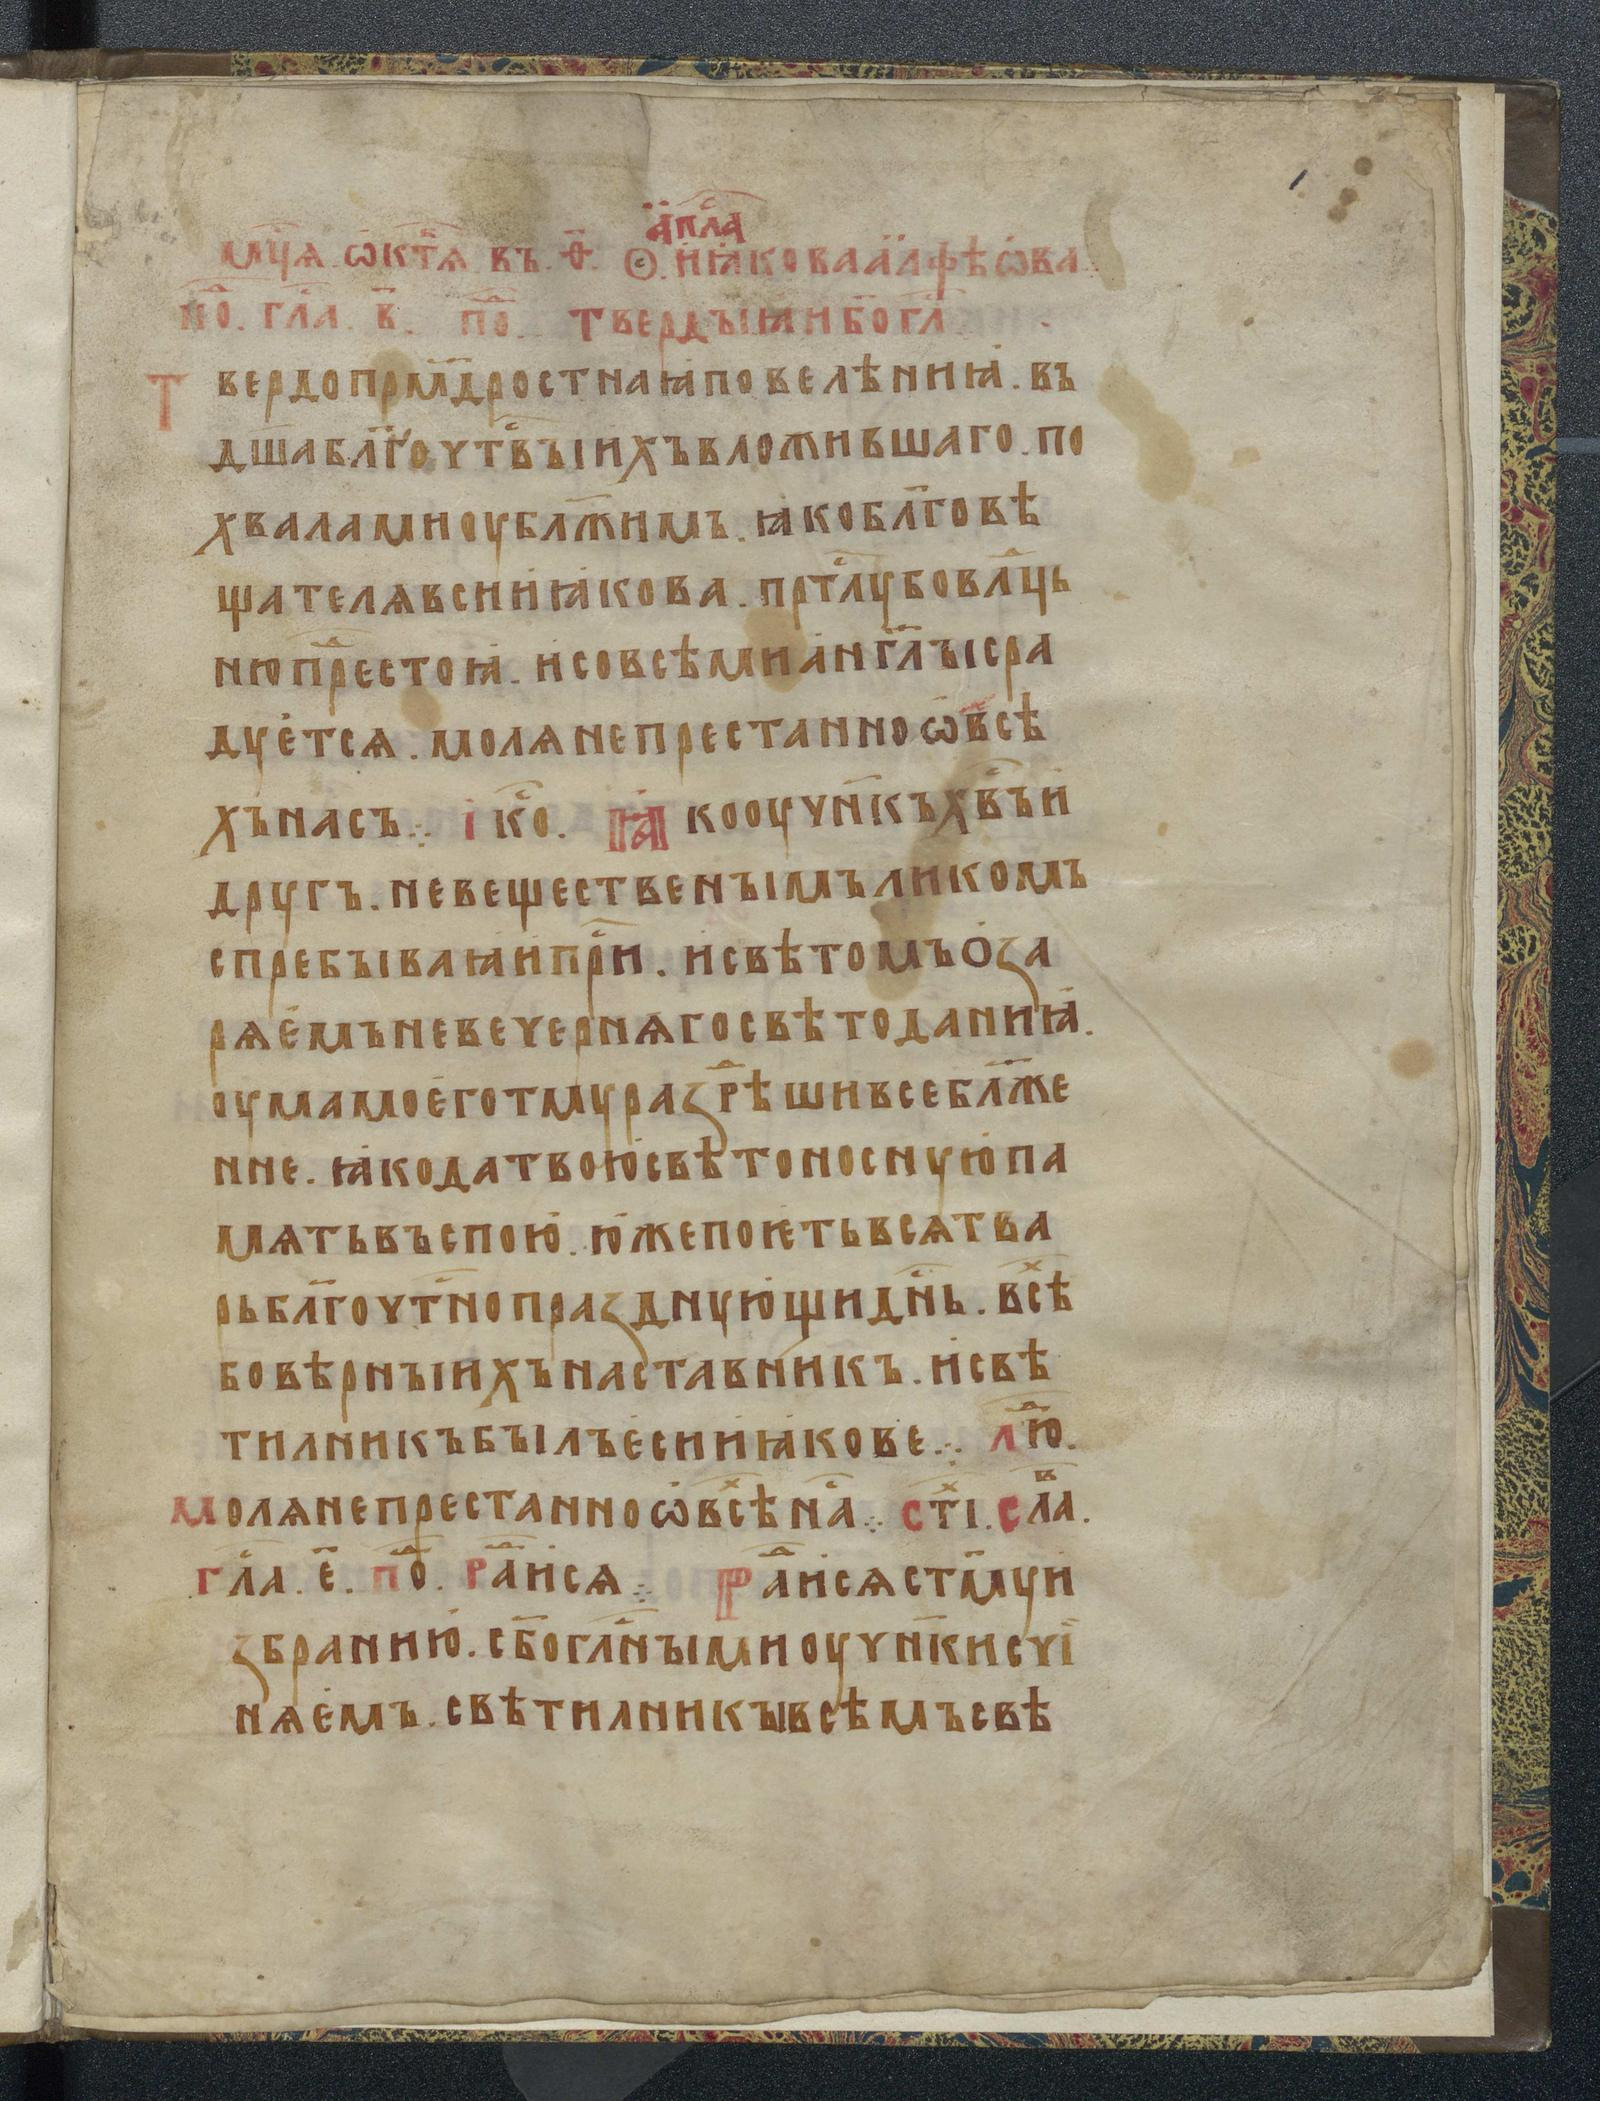 а҆пⷭ҇ла
мцⷭ҇а ѡкт҃ѧ въ ѳ҃ ꙩ ꙗ҆кова алфѣѡва
но҃ гла в҃ поⷣ твердыꙗ и б҃огл҃
Твердопрм҃дростнаꙗ повелѣниꙗ . въ
дш҃а блг҃оутⷭ҇выихъ вложившаго . по
хвалами оублж҃имъ . ꙗко блг҃овѣ
щателѧ вси иꙗкова . прⷭ҇тлу бо влⷣцѣ
ню прⷣестоꙗ . и со всѣми англ҃ы сра
дуетсѧ . молѧ непрестанно ѡ всѣ
хъ насъ ⁘ ікоⷭ҇ . Ꙗко оучн҃къ хвⷭ҇ъ и
другъ . невещественымъ ликомъ
спребываꙗи прⷭ҇и . и свѣтомъ ѻза
рѧемъ невечернѧго свѣтоданиꙗ .
оума моего тму разрⷣѣши всеблж҃е
нне . ꙗко да твою свѣтоносную па
мѧть въспою . юже поѥть всѧ тва
рь блг҃оутⷭ҇но празднующи днⷭ҇ь . всѣⷯ
бо вѣрныихъ наставникъ . и свѣ
тилникъ былъ еси иꙗкове ⁘ люⷣ .
молѧ непрестанно ѡ всѣⷯ наⷭ҇ ⁘ стиⷯ . слаⷡ .
глаⷭ҇ . е҃ . поⷣ . Раⷣисѧ ⁘ Раⷣисѧ стм҃у и
збранию . с бо҃глⷭ҇ными оучн҃ки счи
нѧемъ . свѣтилникы всѣмъ свѣ